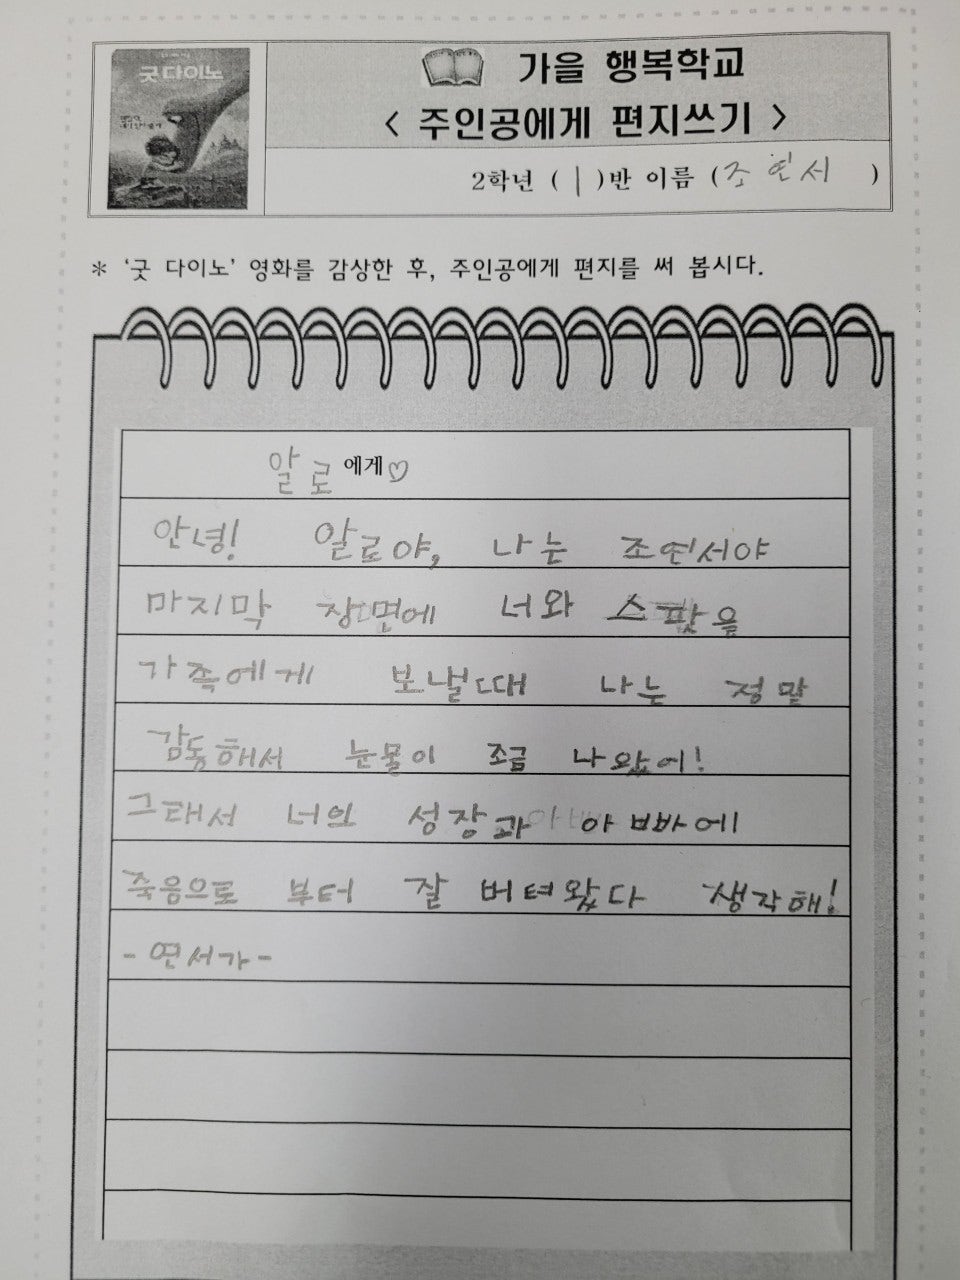 굿 다이노
가을 행복학교
< 주인공에게 편지쓰기 >
2학년 ( 1 )반 이름 (조연서 )
* '굿 다이노' 영화를 감상한 후, 주인공에게 편지를 써 봅시다.
알로 에게♡
안녕! 알로야, 나는 조연서야
마지막 장면에 너와 스팟을
가족에게 보낼때 나는 정말
감동해서 눈물이 조금 나왔어!
그래서 너의 성장과 아빠에
죽음으로 부터 잘 버텨왔다 생각해!
- 연서가 -